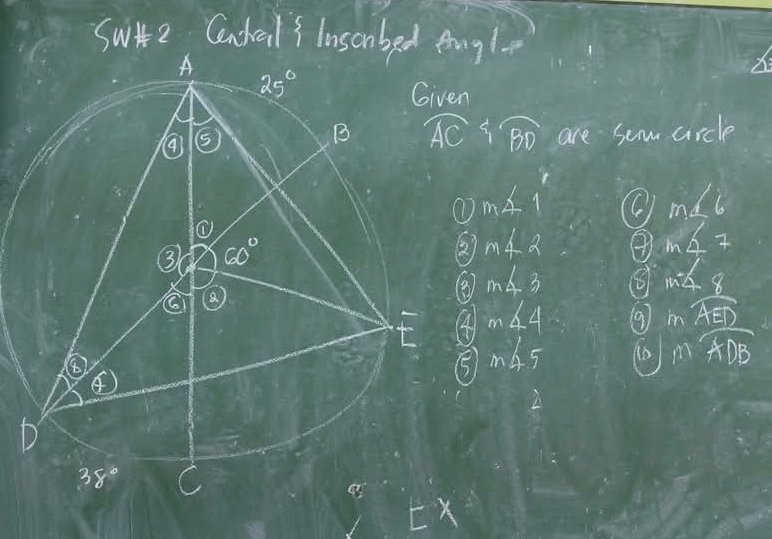 SW#2 Central & Inscribed Angle
A
25°
B
Given
AC & BD are semi circle
④ ⑤
① m∡1
② m∡2
③ m∡3
④ m∡4
⑤ m∡5
⑥ m∡6
⑦ m∡7
⑧ m∡8
⑨ m AED
⑩ m ADB
①
③ 60°
⑥ ②
E
⑧
D
38°
C
EX